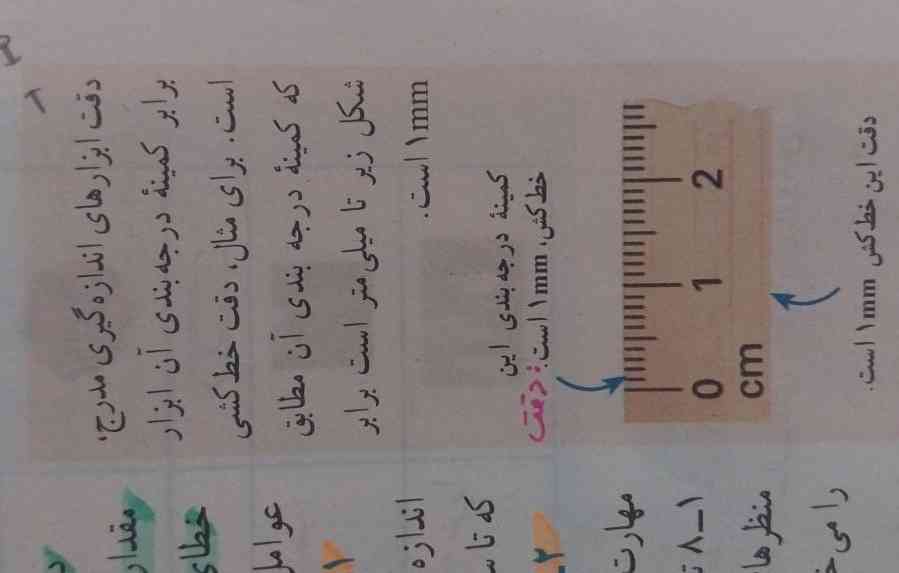 دقت ابزارهای اندازه‌گیری مدرج،
برابر کمینهٔ درجه‌بندی آن ابزار
است. برای مثال، دقت خط‌کشی
که کمینهٔ درجه بندی آن مطابق
شکل زیر تا میلی‌متر است برابر
۱mm است.
کمینهٔ درجه‌بندی این
خط‌کش، ۱mm است.
: دقت
0 1 2
cm
دقت این خط‌کش ۱mm است.
مقدار
خطای
عوامل
۱
اندازه
که تا
۲
مهارت
۱-۸
منظرها
را می